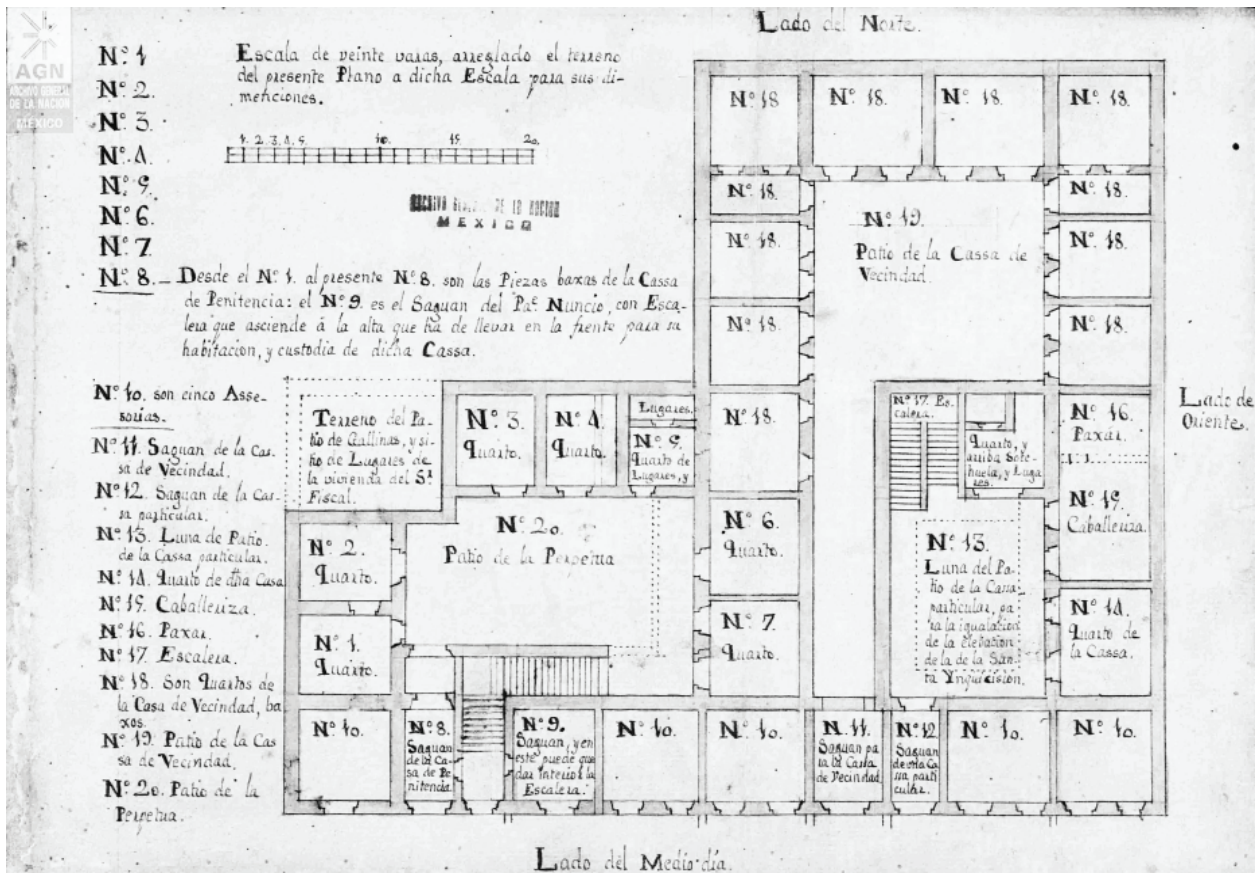 Lado del Norte.
AGN
ARCHIVO GENERAL
DE LA NACIÓN
MÉXICO
Nº. 1
Nº. 2.
Nº. 3.
Nº. 4.
Nº. 5.
Nº. 6.
Nº. 7
Nº. 8 Desde el Nº. 1. al presente Nº. 8. son las Piezas baxas de la Cassa
de Penitencia: el Nº. 9. es el Saguan del Pe. Nuncio, con Esca-
lera que asciende á la alta que ha de llevar en la frente para su
habitacion, y custodia de dicha Cassa.
Escala de veinte varas, arreglado el terreno
del presente Plano a dicha Escala para sus di-
menciones.
1. 2. 3. 4. 5. 10. 15. 20.
ARCHIVO GENERAL DE LA NACION
MEXICO
Nº. 10. son cinco Asse-
sorias.
Nº. 11. Saguan de la Cas-
sa de Vecindad.
Nº. 12. Saguan de la Cas-
sa particular.
Nº. 13. Luna de Patio
de la Cassa particular.
Nº. 14. Quarto de dha Casa
Nº. 15. Caballeriza.
Nº. 16. Paxar.
Nº. 17. Escalera.
Nº. 18. Son Quartos de
la Casa de Vecindad, ba-
xos.
Nº. 19. Patio de la Cas
sa de Vecindad.
Nº. 20. Patio de la
Perpetua.
Nº. 18.
Nº. 18.
Nº. 18.
Nº. 18.
Nº. 18.
Nº. 18.
Nº. 18.
Nº. 18.
Nº. 18.
Nº. 18.
Nº. 18.
Nº. 19.
Patio de la Cassa de
Vecindad.
Lado de
Oriente.
Terreno del Pa-
tio de Gallinas, y si-
tio de Lugares de
la vivienda del Sr.
Fiscal.
Nº. 3.
Quarto.
Nº. 4.
Quarto.
Lugares.
Nº. 5.
Quarto de
Lugares, y
Nº. 17. Es-
calera.
Quarto, y
arriba Sote-
huela, y Luga
res.
Nº. 16.
Paxar.
Nº. 15.
Caballeriza.
Nº. 2.
Quarto.
Nº. 20.
Patio de la Perpetua
Nº. 6
Quarto.
Nº. 13.
Luna del Pa-
tio de la Cassa
particular, pa-
ra la igualacion
de la elebacion
de la de la San-
ta Ynquicision.
Nº. 1.
Quarto.
Nº. 7
Quarto.
Nº. 14.
Quarto de
la Cassa.
Nº. 10.
Nº. 8.
Saguan
de la Ca-
sa de Pe
nitencia
Nº. 9.
Saguan, y en
este puede que
dar interior la
Escalera.
Nº. 10.
Nº. 10.
Nº. 11.
Saguan pa
ra la Cassa
de Vecindad
Nº. 12.
Saguan
de otra Ca
sa parti
cular.
Nº. 10.
Nº. 10.
Lado del Medio-dia.